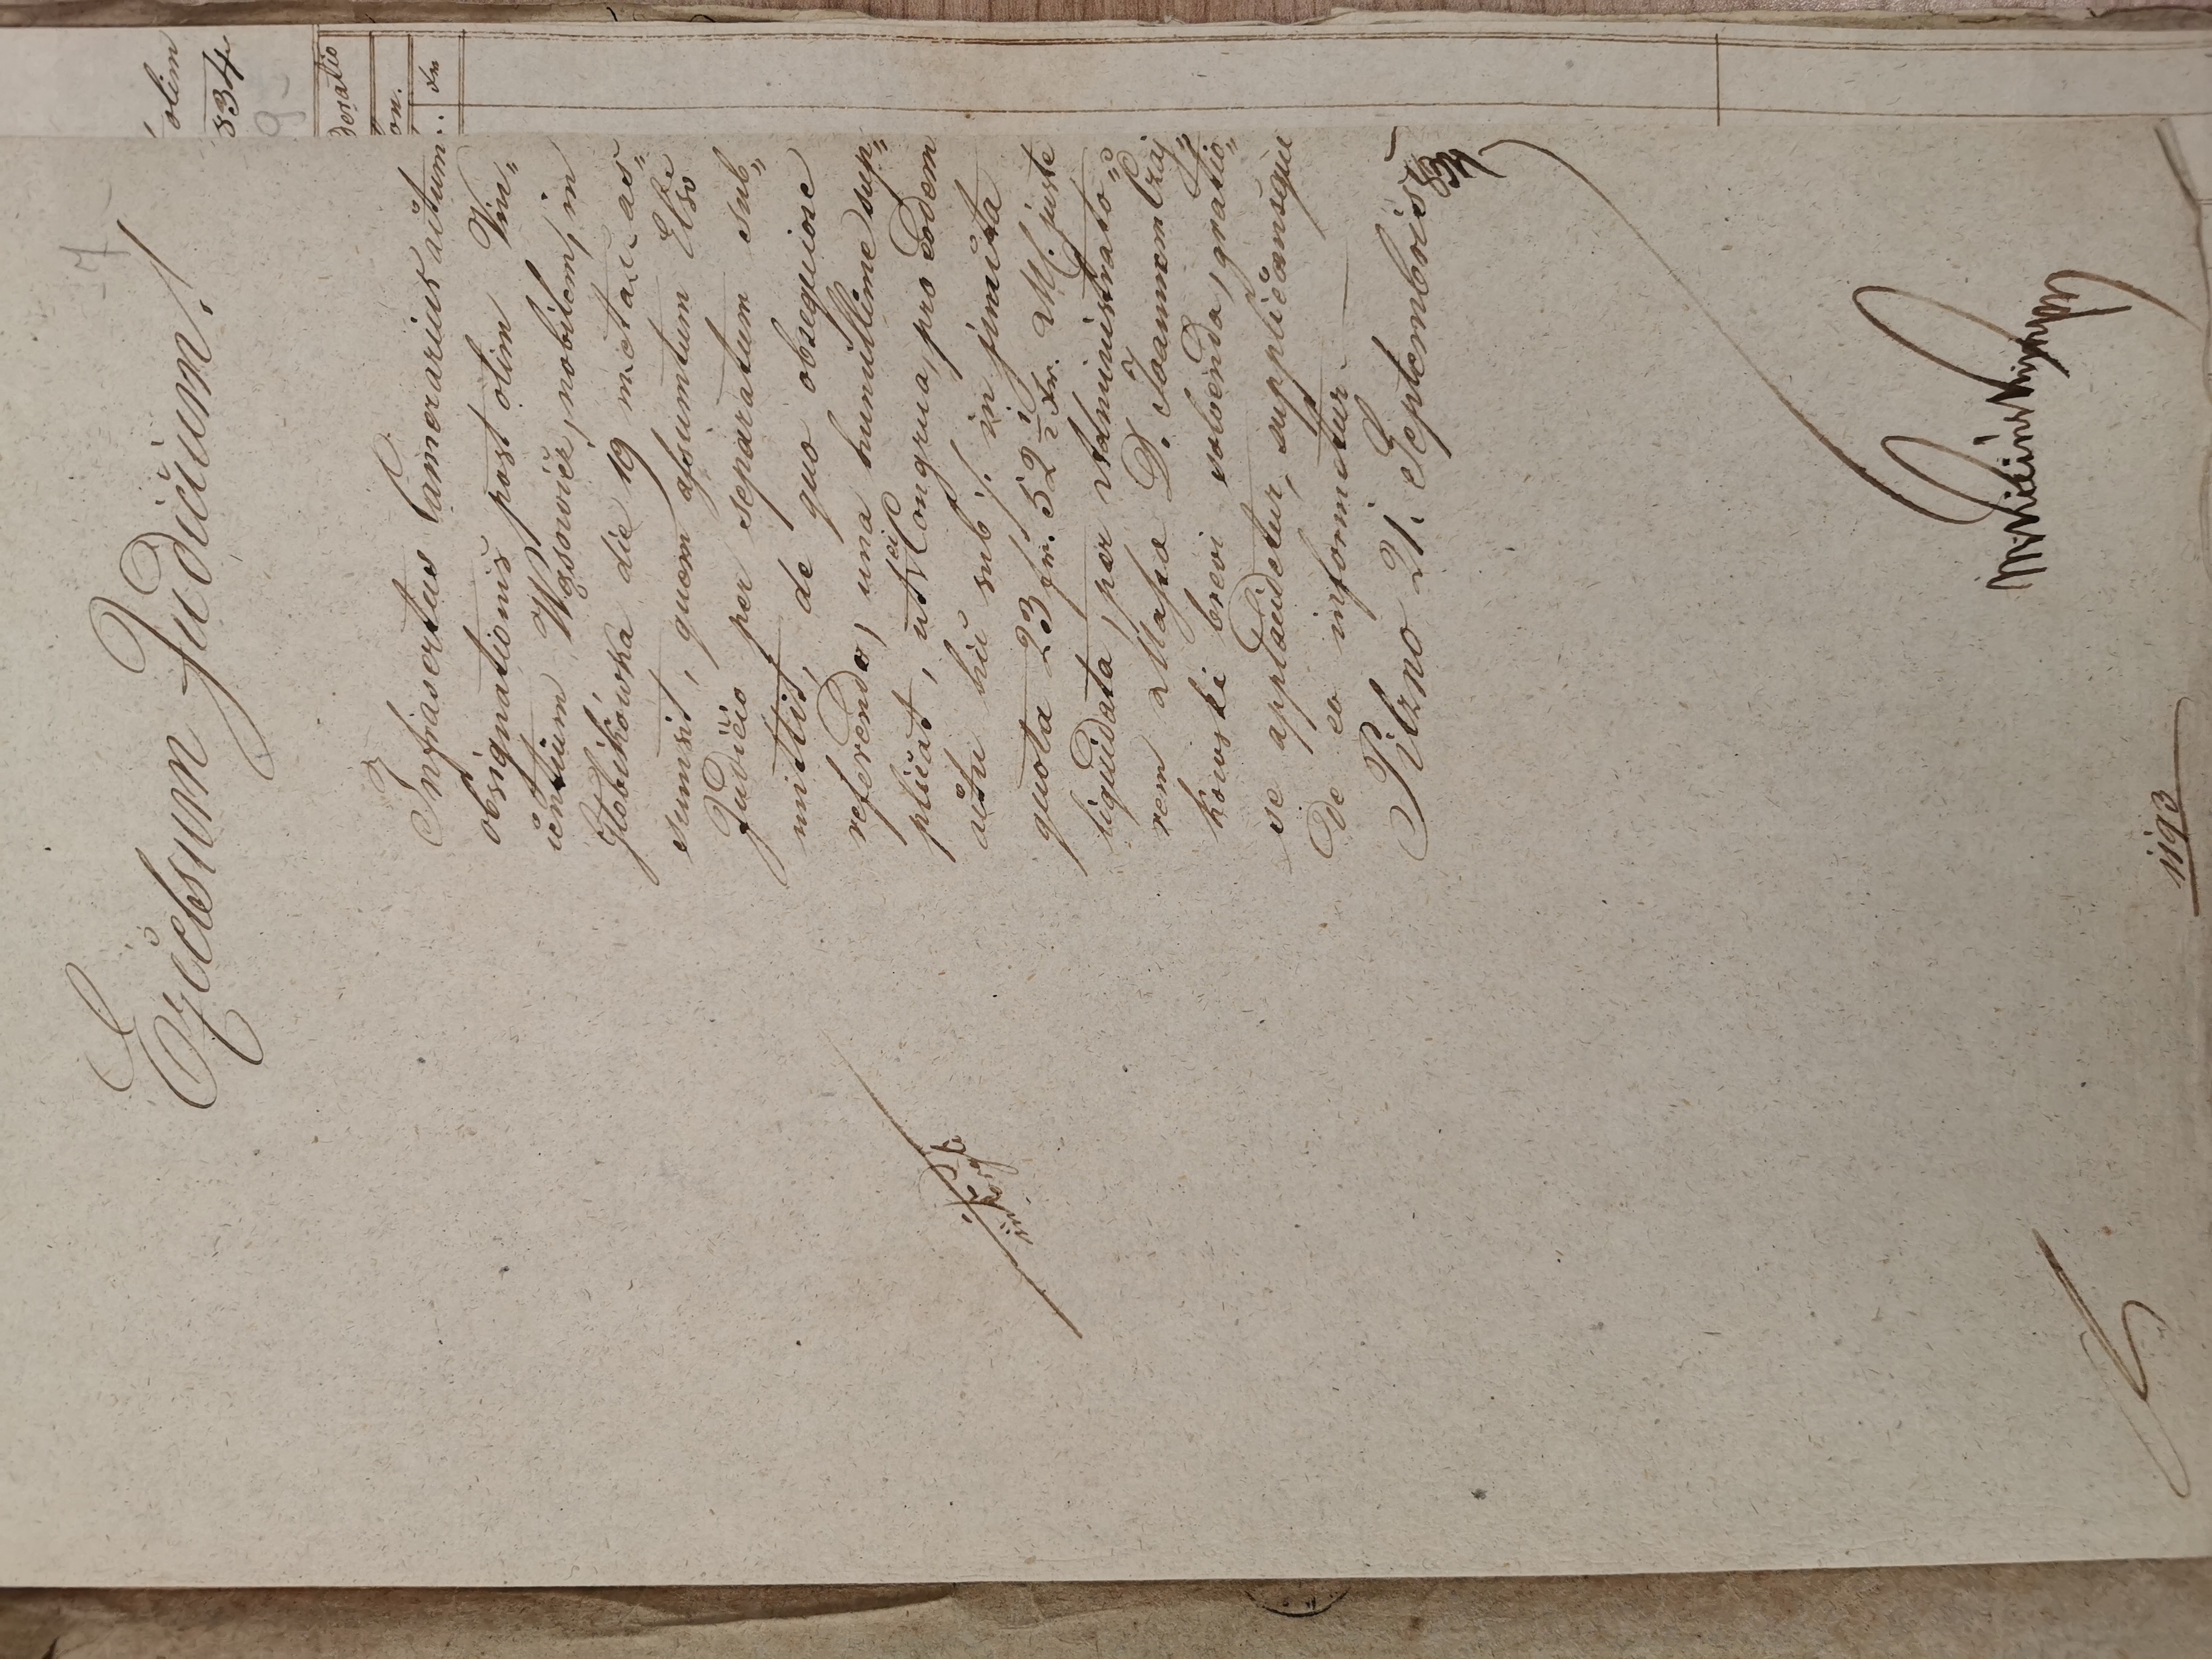 7
Excelsum Judicium!
Infrascertus Camerarius actum
obsignationis post olim Vin„
centium Wąsowicz, nobilem, in
Globikówka die 19 mectac as„
sumsit, quem assumtum Elso
Judicio per separatum sub„
mittit, de quo obsequiose
referendo, una humillime sup„
plicat, ut ei Congrua, pro eodem
actu hic sub ./. in juncta
quota 23 fr. 52 1/2 xr. M. juste
liquidata, per Administrato„
rem Massæ D. Joannem Czaj„
kowski brevi solvenda, gratio„
se applaudetur, supplicansque
de eo informetur.
Pilzno 21. Septembris
834
./.
1893
olim
834
9
deratio
on.
xr